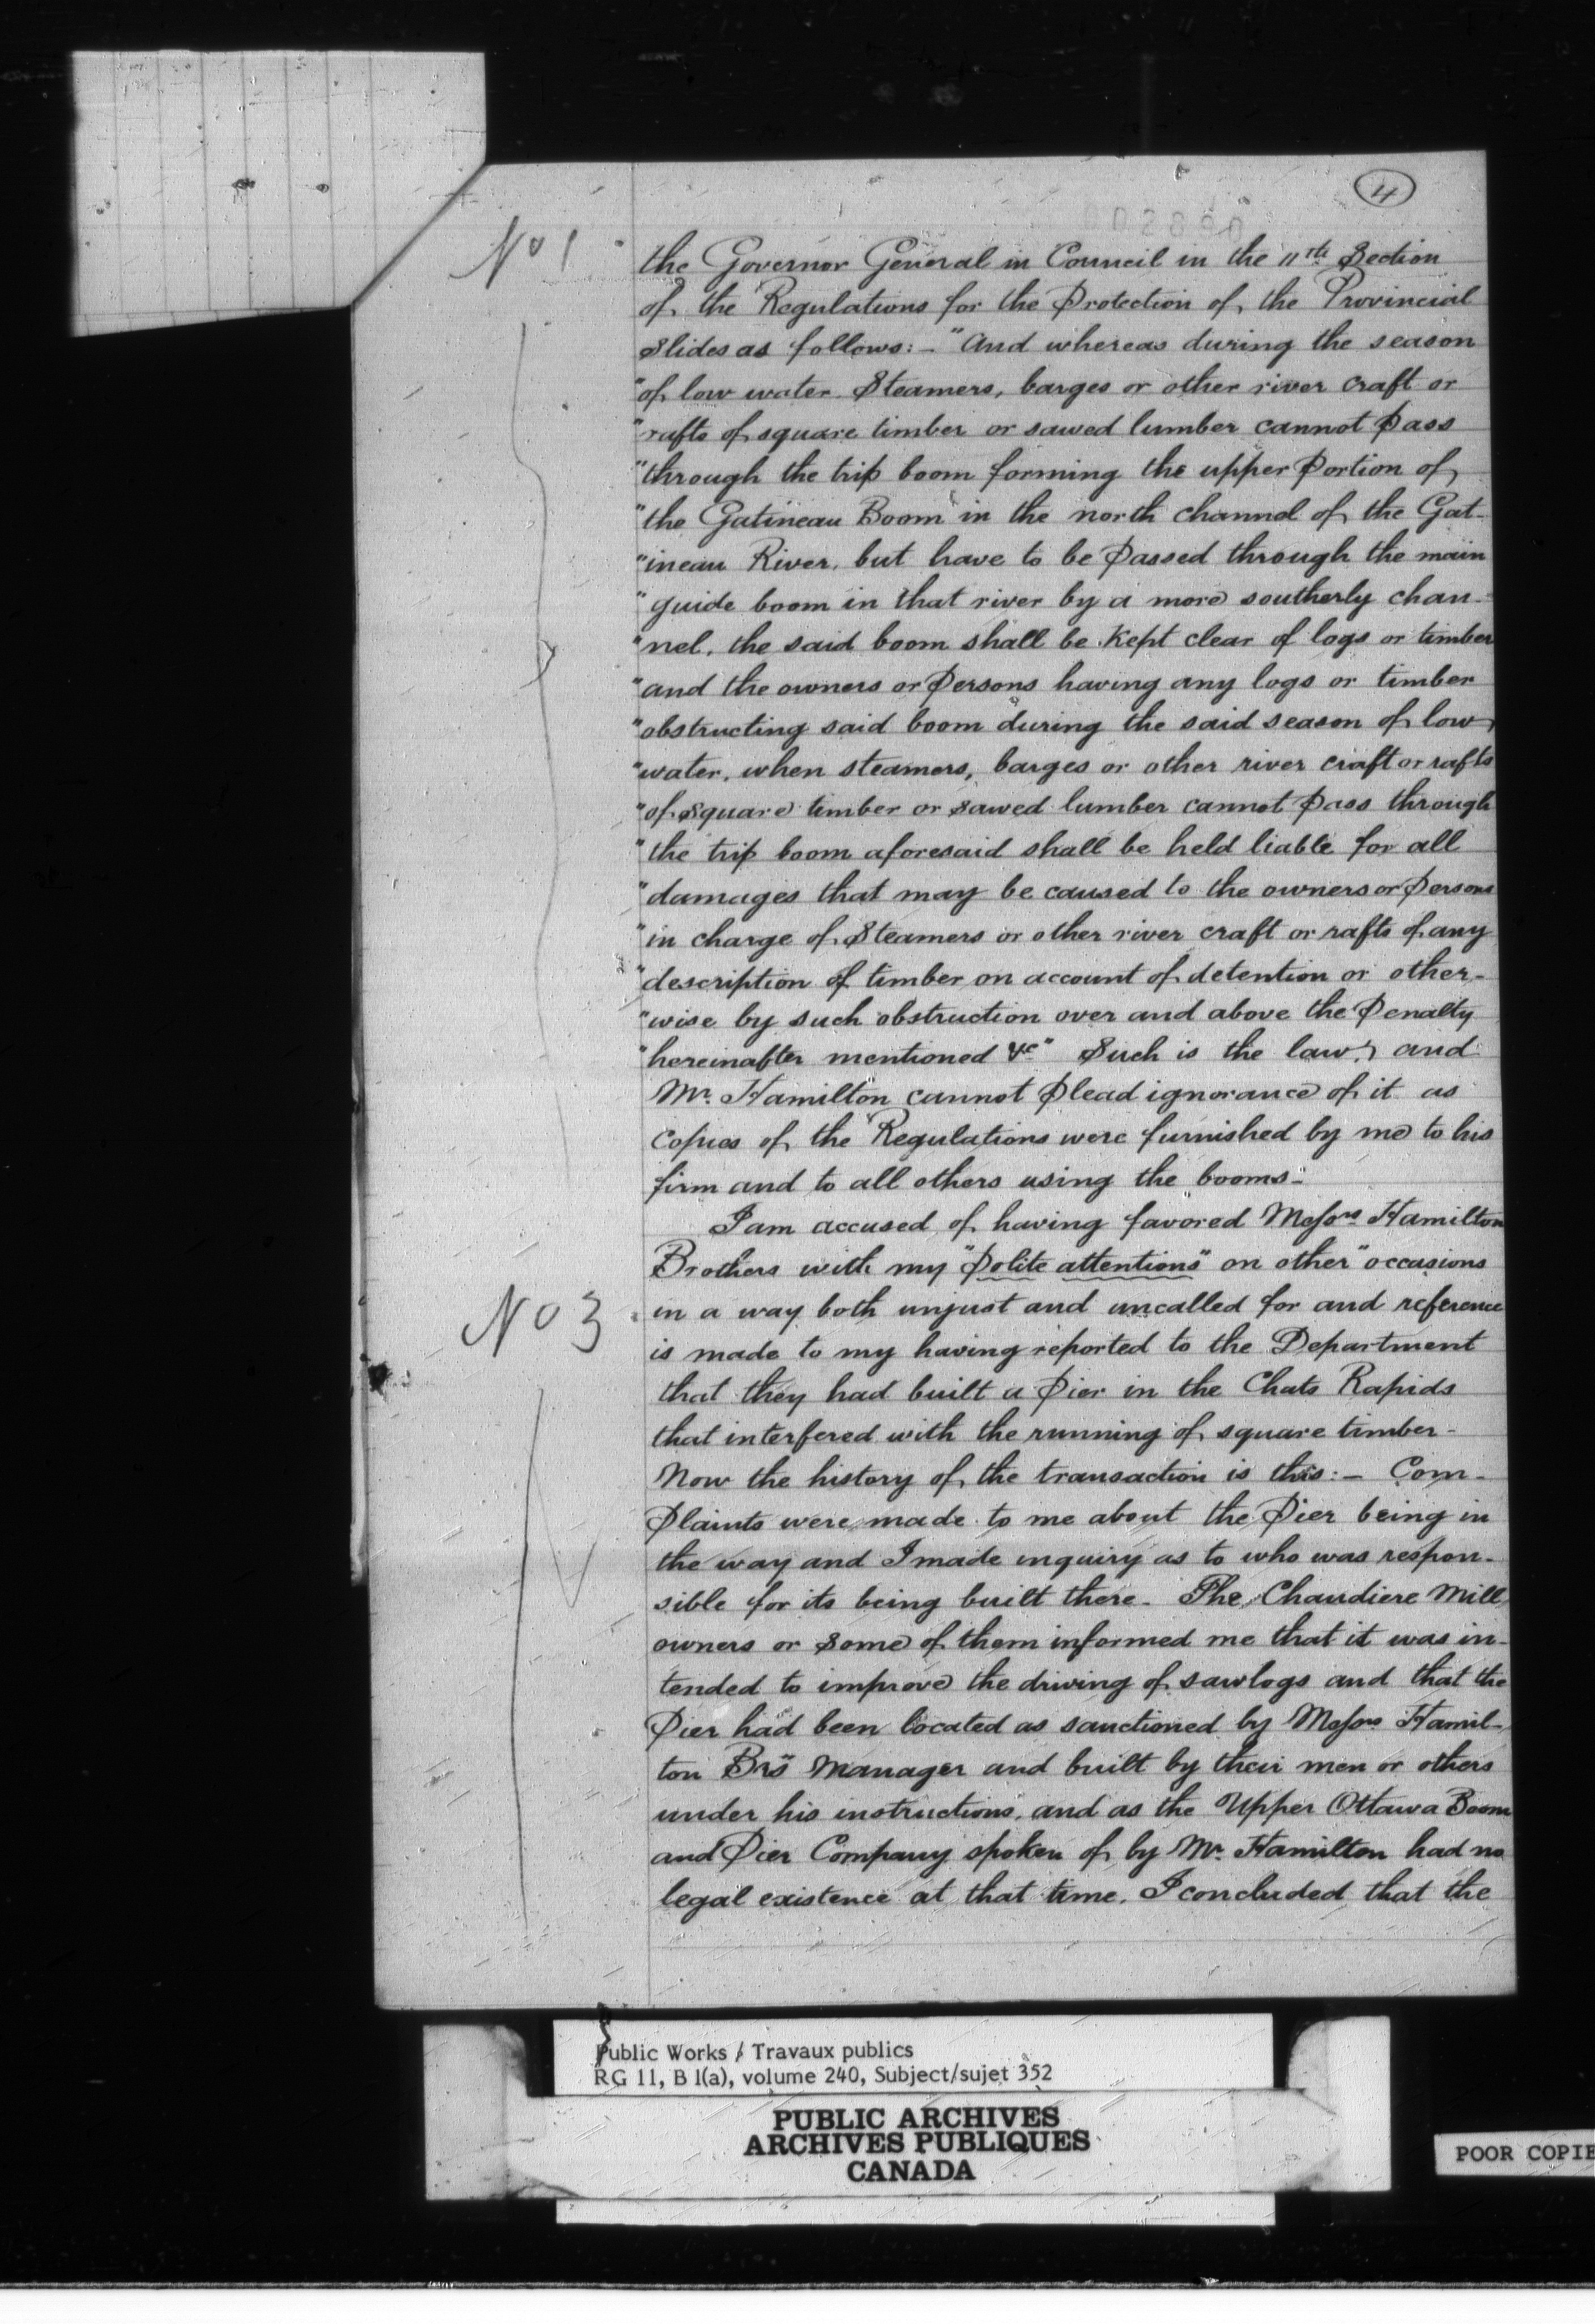 4
No 1
the Governor General in Council in the 11th Section
of the Regulations for the Protection of the Provincial
Slides as follows:- "And whereas during the season
"of low water Steamers, barges or other river craft or
"rafts of square timber or sawed lumber cannot pass
"through the trip boom forming the upper portion of
"the Gatineau Boom in the north channel of the Gat-
"ineau River, but have to be passed through the main
"guide boom in that river by a more southerly chan-
"nel, the said boom shall be kept clear of logs or timber
"and the owners or persons having any logs or timber
"obstructing said boom during the said season of low
"water, when steamers, barges or other river craft or rafts
"of square timber or sawed lumber cannot pass through
"the trip boom aforesaid shall be held liable for all
"damages that may be caused to the owners or persons
"in charge of Steamers or other river craft or rafts of any
"description of timber on account of detention or other-
"wise by such obstruction over and above the penalty
"hereinafter mentioned &c" Such is the law, and
Mr. Hamilton cannot plead ignorance of it as
copies of the Regulations were furnished by me to his
firm and to all others using the booms-
I am accused of having favored Messrs Hamilton
Brothers with my "polite attentions" on other "occasions
No 3
in a way both unjust and uncalled for and reference
is made to my having reported to the Department
that they had built a pier in the Chats Rapids
that interfered with the running of square timber-
Now the history of the transaction is this:- Com-
plaints were made to me about the pier being in
the way and I made inquiry as to who was respon-
sible for its being built there- The Chaudiere Mill
owners or some of them informed me that it was in-
tended to improve the driving of sawlogs and that the
pier had been located as sanctioned by Messrs Hamil-
ton Brs Manager and built by their men or others
under his instructions, and as the Upper Ottawa Boom
and Pier Company spoken of by Mr. Hamilton had no
legal existence at that time, I concluded that the
Public Works / Travaux publics
RG 11, B 1(a), volume 240, Subject/sujet 352
PUBLIC ARCHIVES
ARCHIVES PUBLIQUES
CANADA
POOR COPIE